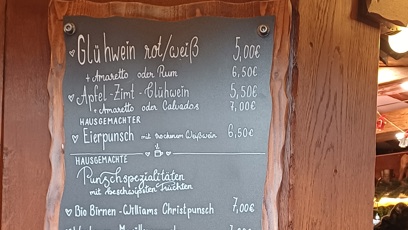 Glühwein rot/weiß 5,00€
+ Amaretto oder Rum 6,50€
Apfel-Zimt-Glühwein 5,50€
+ Amaretto oder Calvados 7,00€
HAUSGEMACHTER
Eierpunsch mit trockenem Weißwein 6,50€
HAUSGEMACHTE
Punschspezialitäten
mit beschwipsten Früchten
Bio Birnen-Williams Christpunsch 7,00€